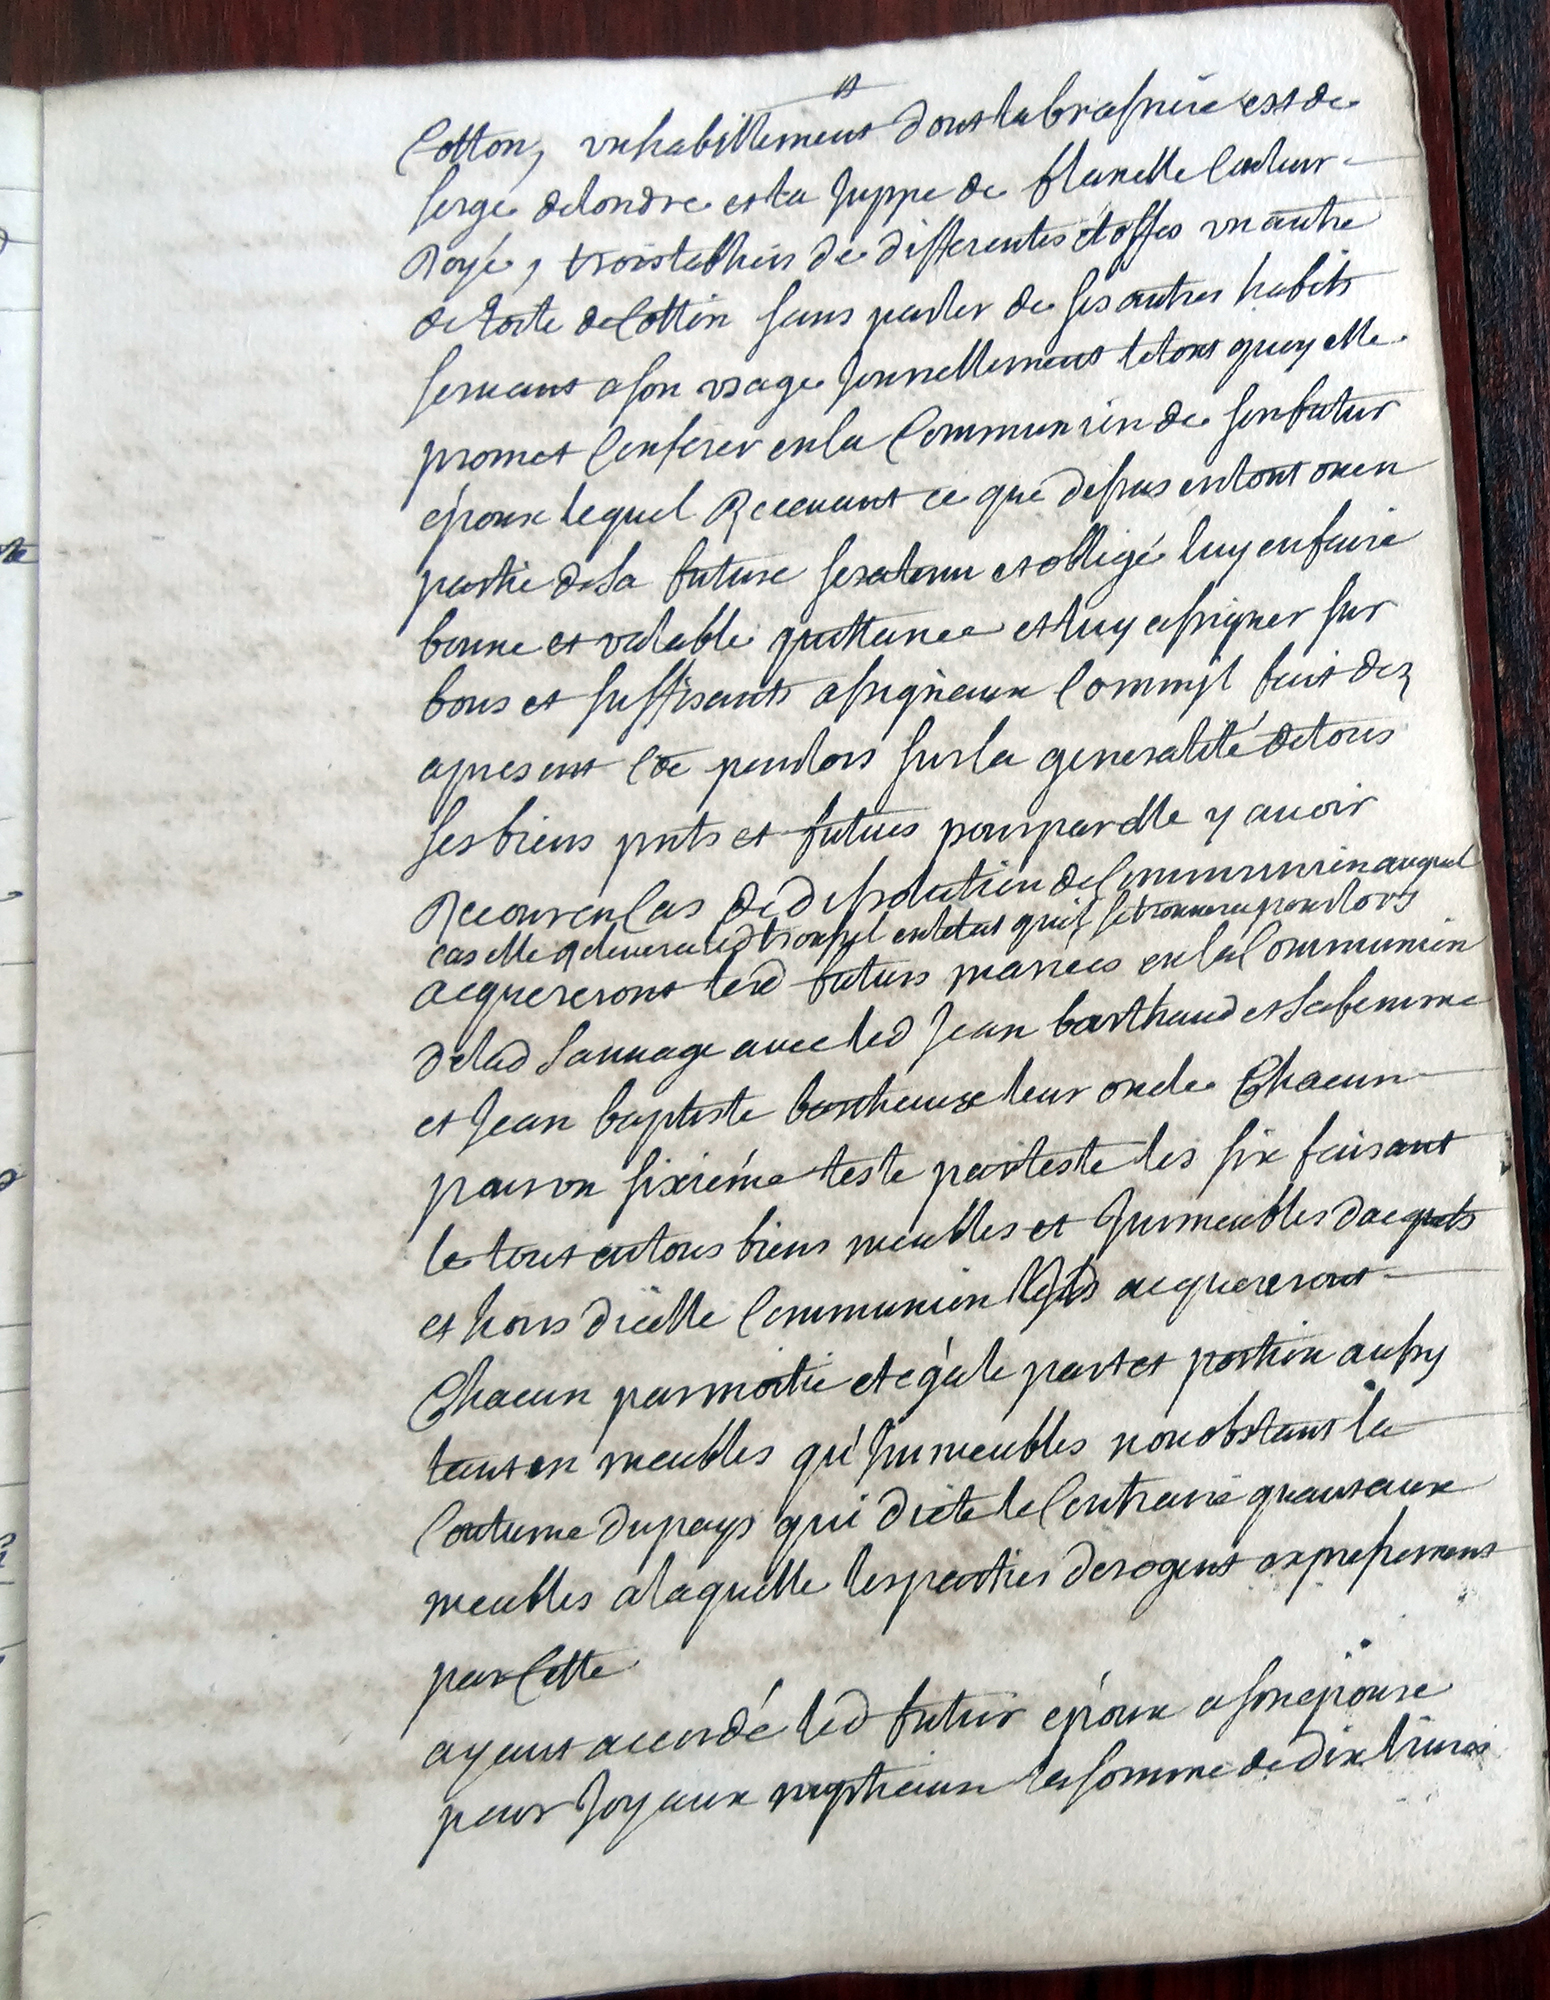 Cotton, un habillement dont la brassiere est de
serge de londre et la juppe de flanelle couleur
Royé, trois tabliers de differentes étoffes un autre
de toile de Cotton sans parler de ses autres habits
servants a son usage journellement le tout quoy elle
promet Conferer en la Communion de son futur
époux lequel Recevant ce que dessus en tout ou en
partie de la future sera tenu et obligé luy en faire
bonne et valable quittance et luy assigner sur
bons et suffisants assignaux Comm'jl fait dez
apresent Coe pourlors sur la generalité de tous
ses biens pnts et futurs pour par elle y avoir
Recour en Cas de dissolution de Communion auquel
cas elle relevera led trouss~ en letat quil se trouvera pourlors
acquereront lesd futurs mariees en la Communion
de lad Sauvage avec led Jean barthaud et sa femme
et Jean baptiste barthaux leur oncle Chacun
par un sixiéme teste par teste les six faisant
le tout en tous biens meubles et jmmeubles dacquets
et hors d'icelle Communion acquereront
Chacun par moitie et égale part et portion aussy
tant en meubles qu'jmmeubles nonobstant la
Coutume du pays qui dicte le Contraire quant aux
meubles a laquelle les parties derogent expressement
par Cette
ayant accordé led futur époux a son épouse
pour Joyaux nuptiaux la somme de dix livres